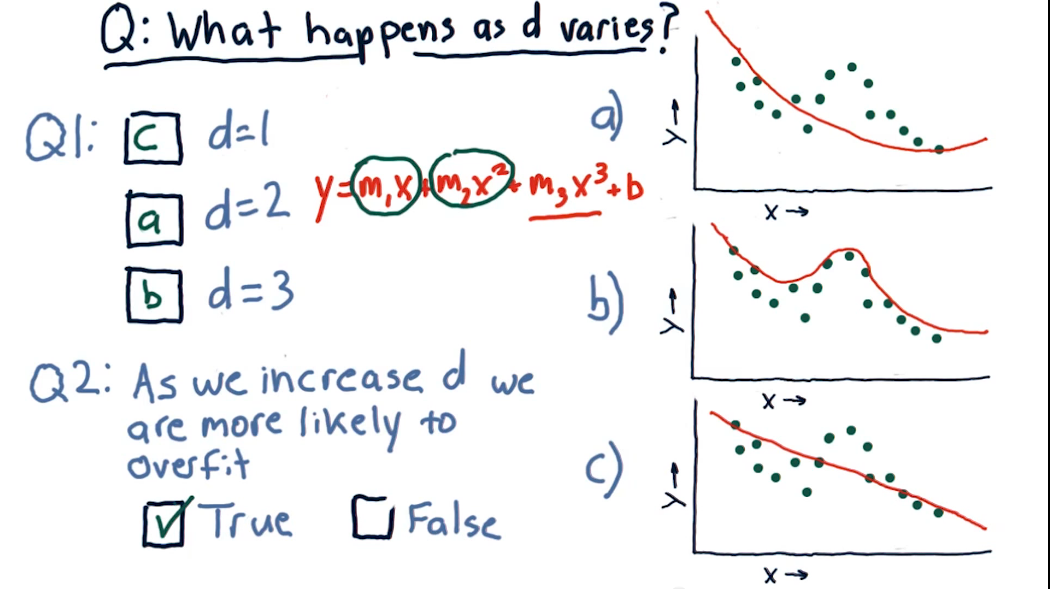 Q: What happens as d varies?
Q1: c d=1
y=m₁x+m₂x²+m₃x³+b
a d=2
b d=3
Q2: As we increase d we
are more likely to
overfit
✓ True False
a)
y→
x→
b)
y→
x→
c)
y→
x→